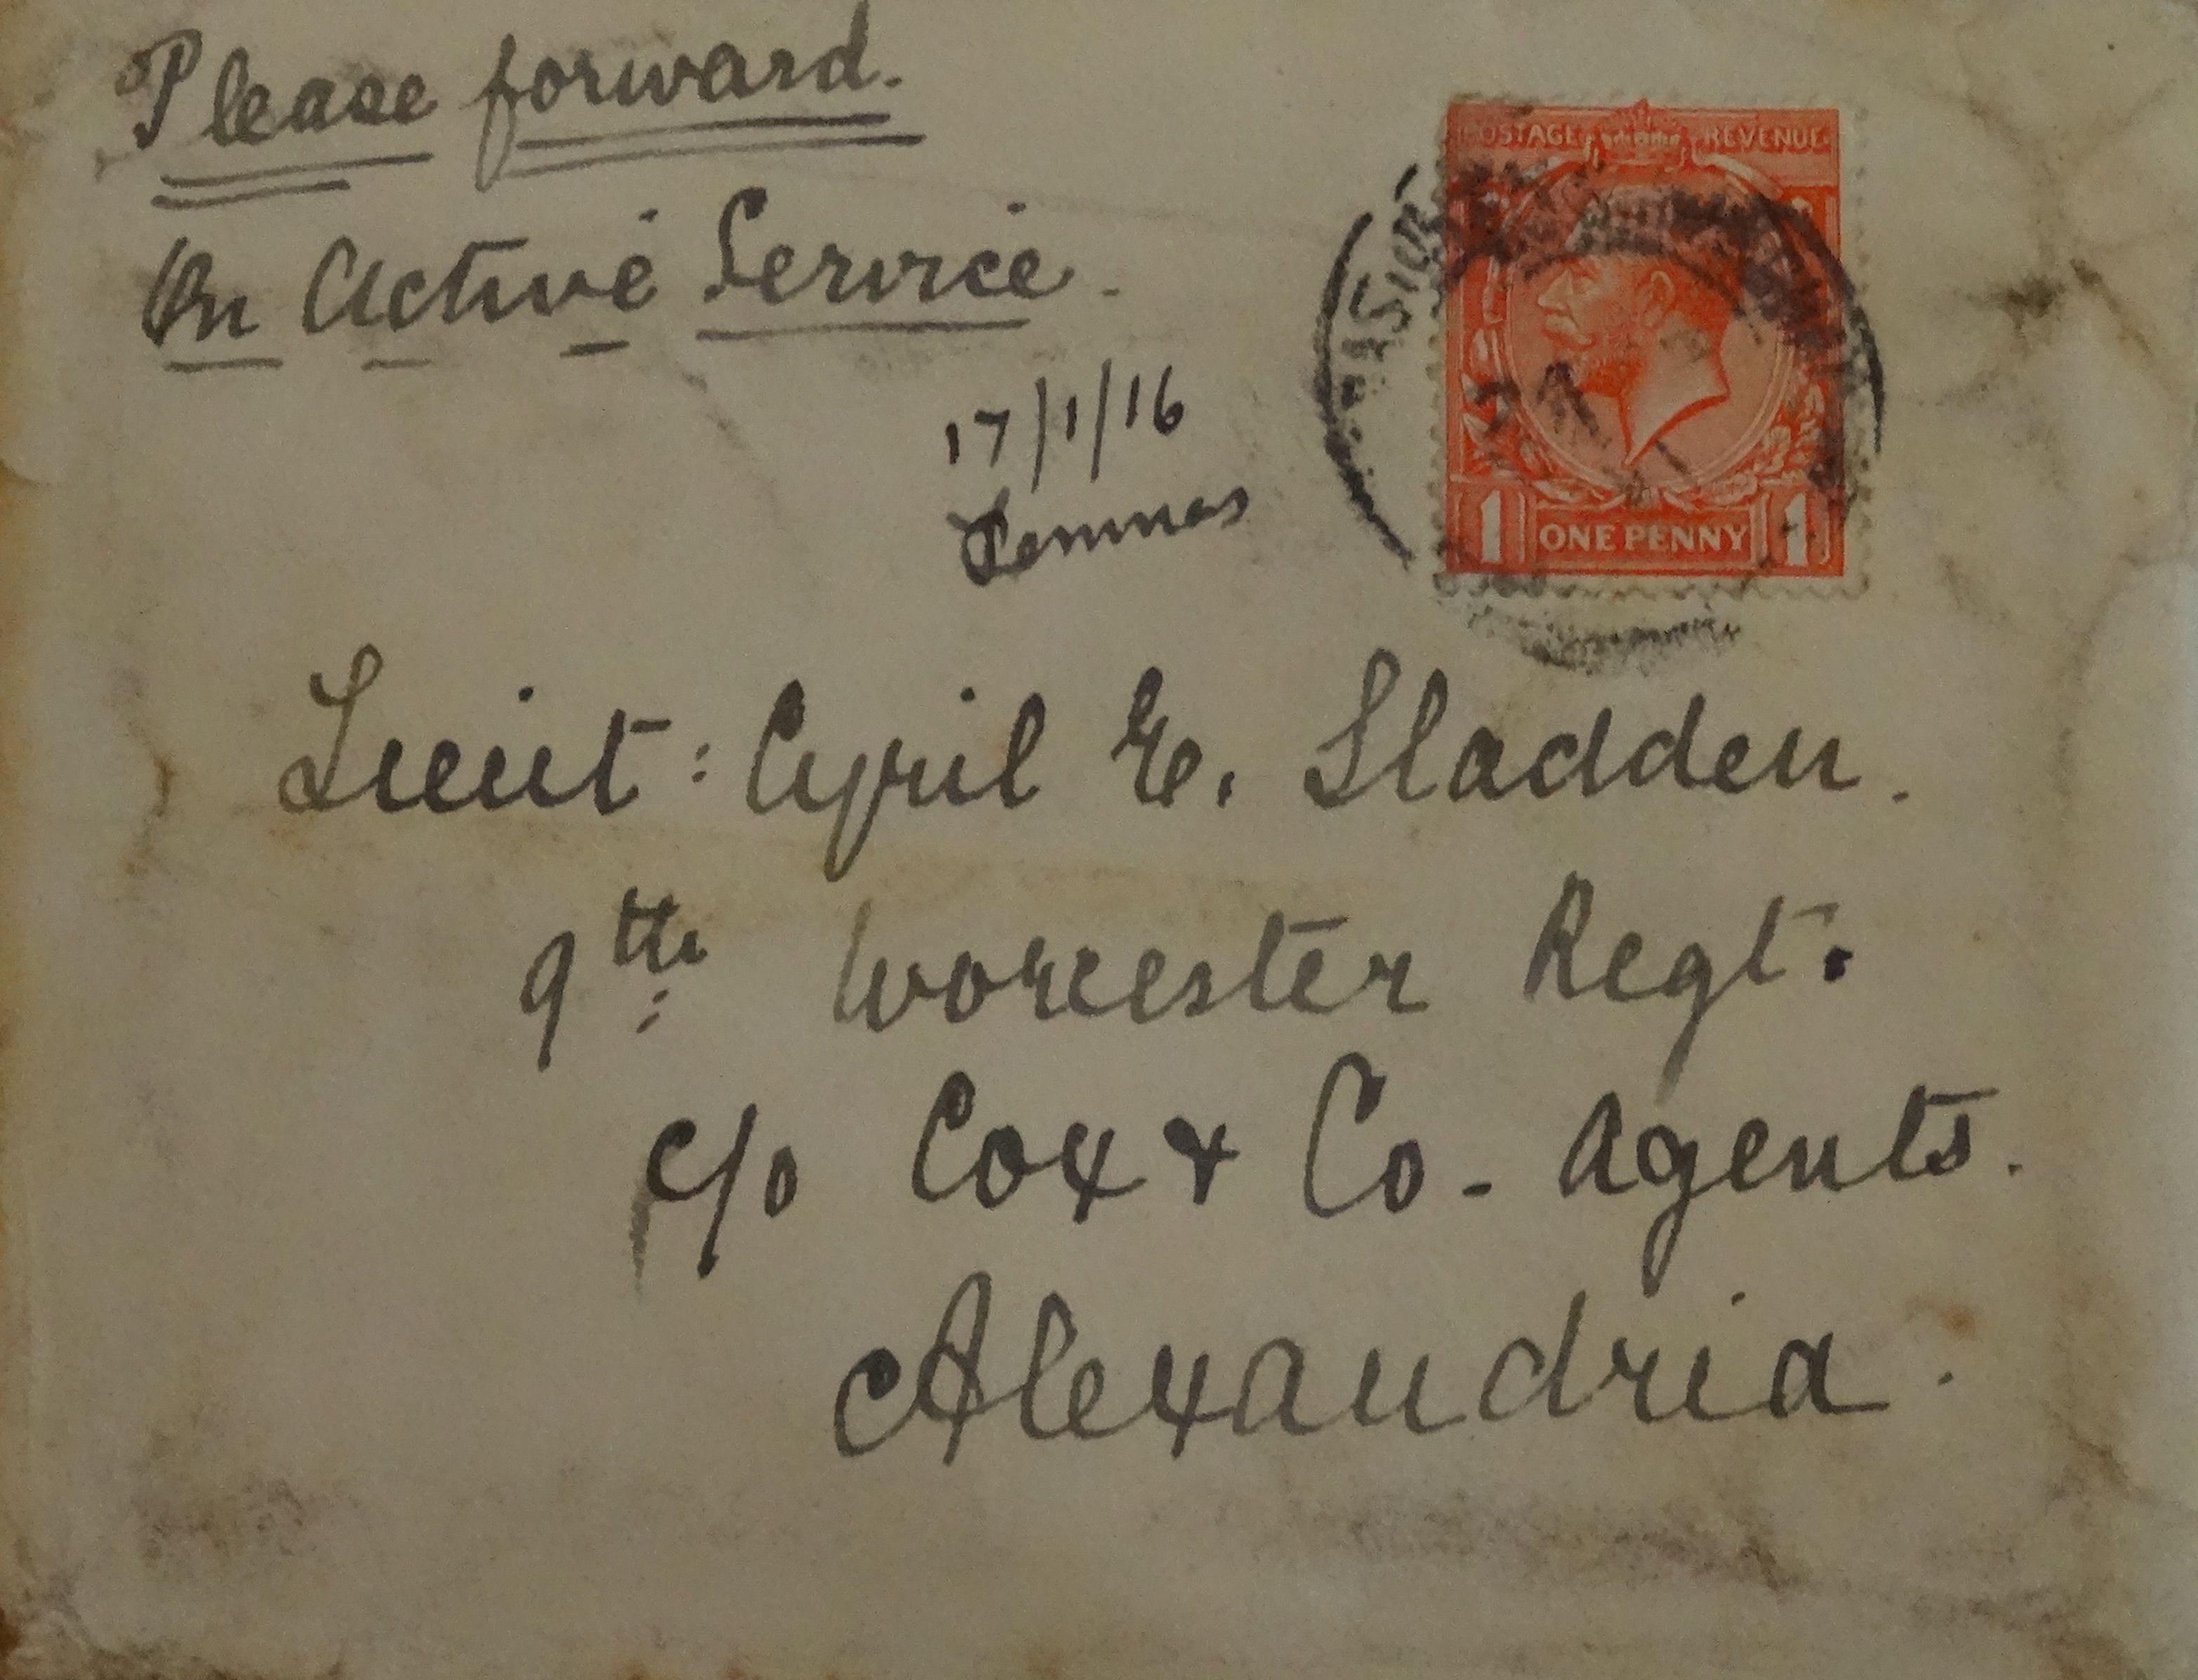 Please forward.
On Active Service.
POSTAGE REVENUE
17/1/16
Lemnos
1 ONE PENNY 1
Lieut: Cyril E. Sladden.
9th: Worcester Regt.
c/o Cox & Co - Agents.
Alexandria.